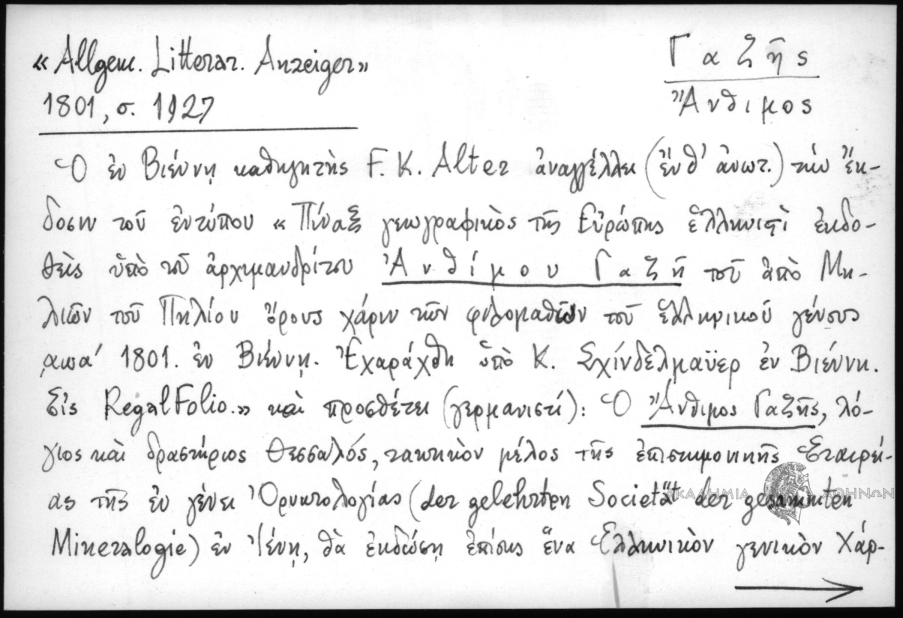 «Allgem. Litterar. Anzeiger»
1801, σ. 1927
Γαζῆς
Ἄνθιμος
Ὁ ἐν Βιέννῃ καθηγητὴς F. K. Alter ἀναγγέλλει (ἔνθ' ἀνωτ.) τὴν ἔκ-
δοσιν τοῦ ἐντύπου «Πίναξ γεωγραφικὸς τῆς Εὐρώπης ἑλληνιστὶ ἐκδο-
θεὶς ὑπὸ τοῦ ἀρχιμανδρίτου Ἀνθίμου Γαζῆ τοῦ ἀπὸ Μη-
λιῶν τοῦ Πηλίου ὄρους χάριν τῶν φιλομαθῶν τοῦ ἑλληνικοῦ γένους
αωα' 1801. ἐν Βιέννῃ. Ἐχαράχθη ὑπὸ Κ. Σχίνδελμαϋερ ἐν Βιέννῃ.
Εἰς RegalFolio.» καὶ προσθέτει (γερμανιστί): Ὁ Ἄνθιμος Γαζῆς, λό-
γιος καὶ δραστήριος Θεσσαλός, τακτικὸν μέλος τῆς ἐπιστημονικῆς Ἑταιρεί-
ας τῆς ἐν γένει Ὀρυκτολογίας (der gelehrten Societät der gesammten
Mineralogie) ἐν Ἰένῃ, θὰ ἐκδώσῃ ἐπίσης ἕνα Ἑλληνικὸν γενικὸν Χάρ-
ΑΚΑΔΗΜΙΑ ΑΘΗΝΩΝ